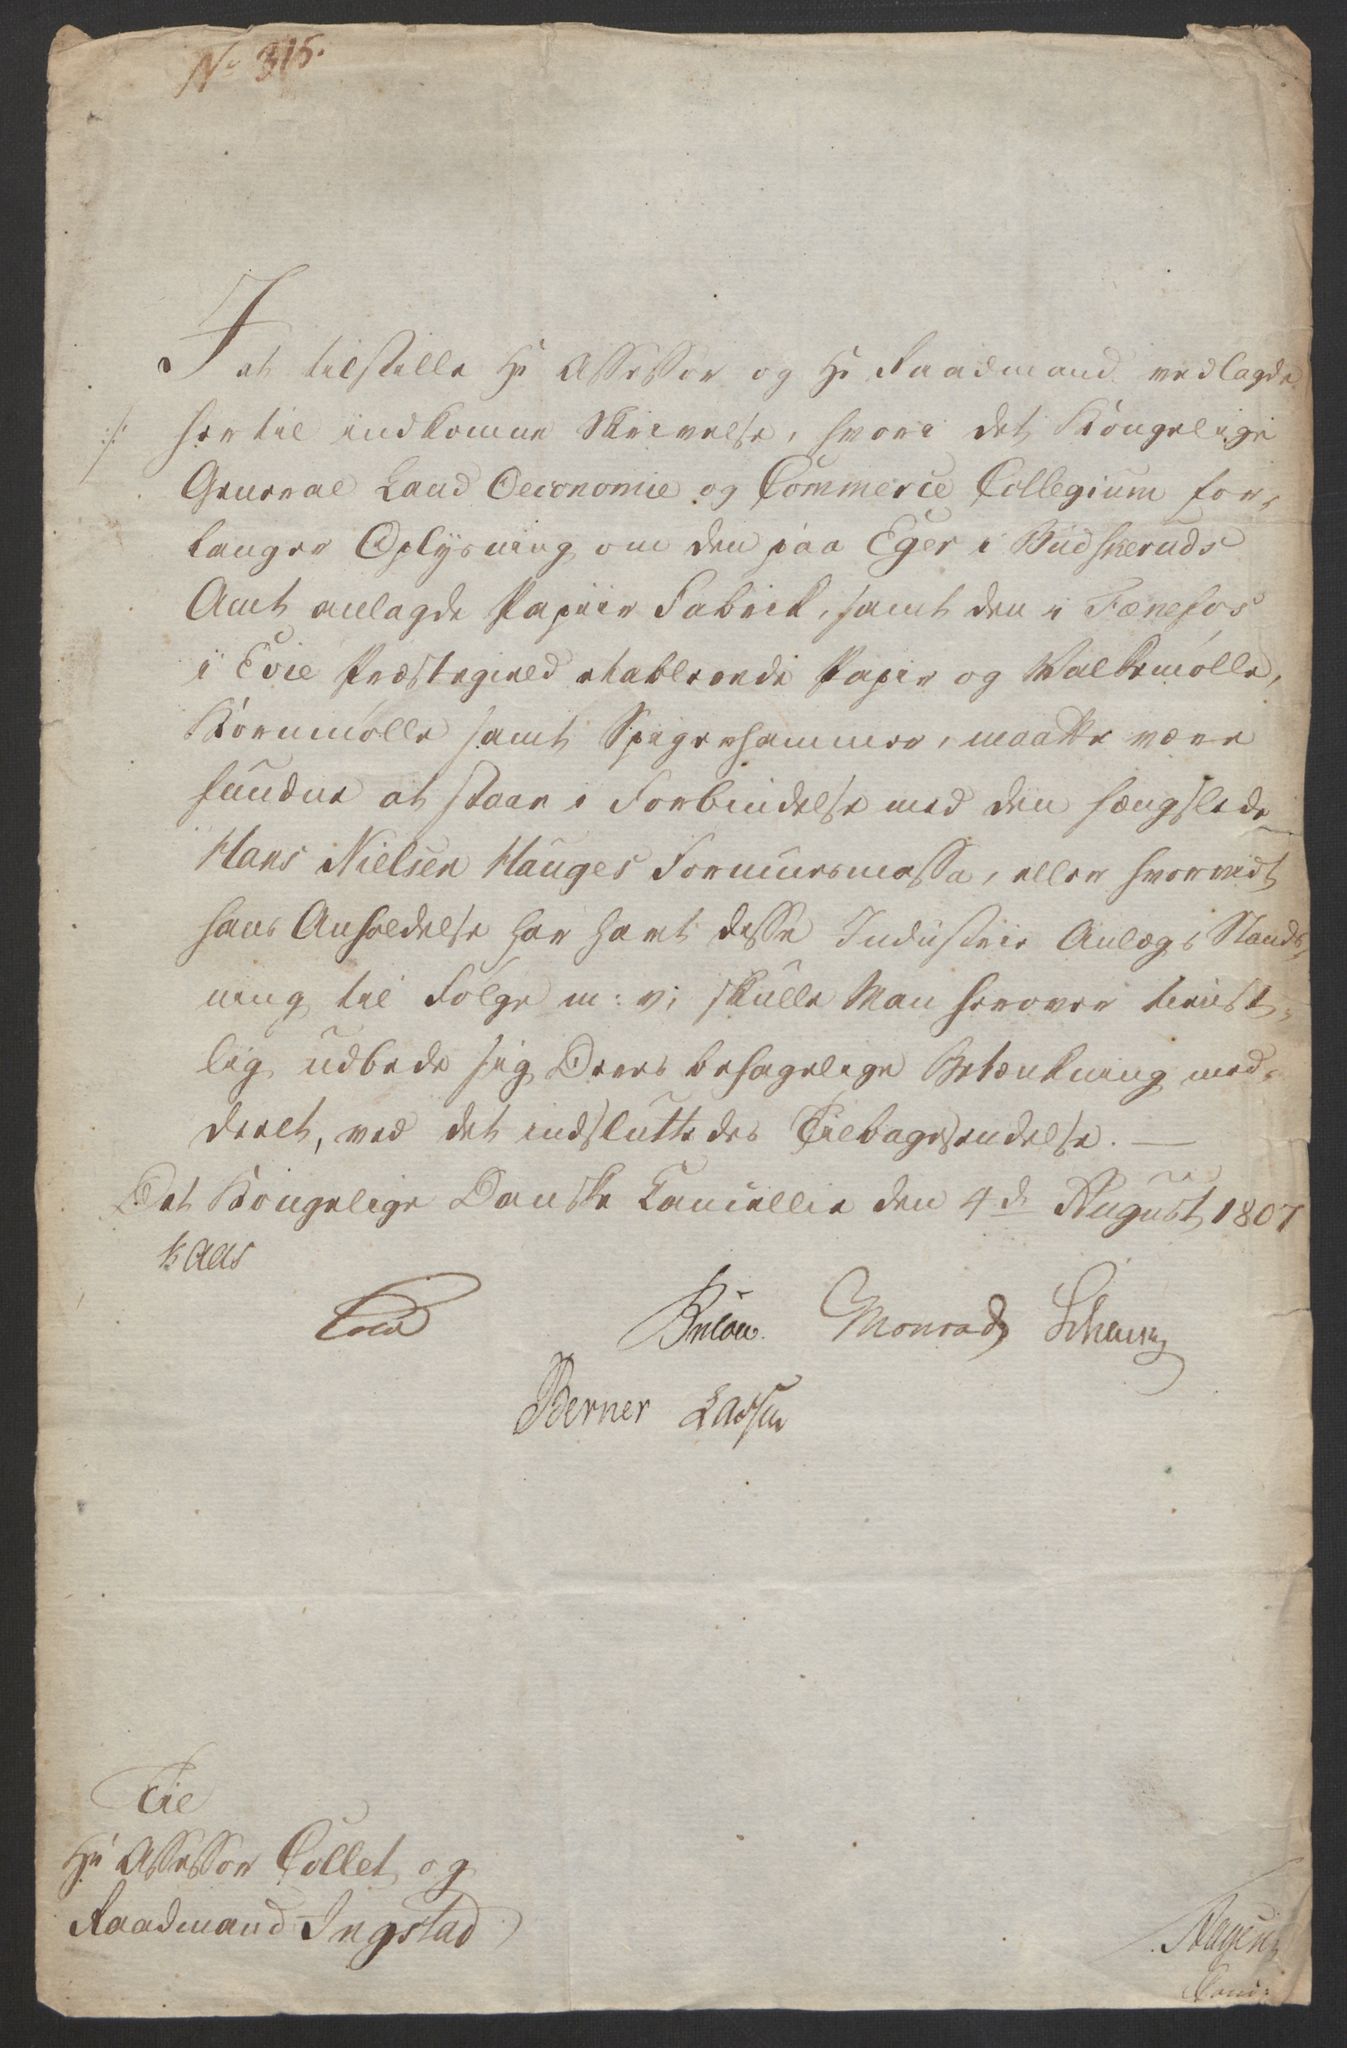 No 315.
I at tilstille Hr Assessor og Hr Raadmand vedlagde
hertil indkomne Skrivelse, hvori det Kongelige
General Land Oeconomie og Commerce Collegium for-
langer Oplysning om den paa Eger i Budskeruds
Amt anlagde Papiir Fabrik, samt den i Fænefos
i Evie Præstegield etablerede Papir og Valkemølle,
Kornmølle samt Spigerhammer, maatte være
fundne at staae i Forbindelse med den fængslede
Hans Nielsen Hauges Formuesmassa, eller hvorvidt
hans Anholdelse har havt disse Industrie Anlægs Stands-
ning til Følge m: v; skulle Man herover tienst-
lig udbede sig Deres behagelige Betænkning med-
deelt, ved det indsluttedes Tilbagesendelse. —
Det Kongelige Danske Cancellie den 4de August 1807
Kaas
Cold Bülow. Monrad
Berner Lassen
Til
Hr Assessor Collet og
Raadmand Ingstad